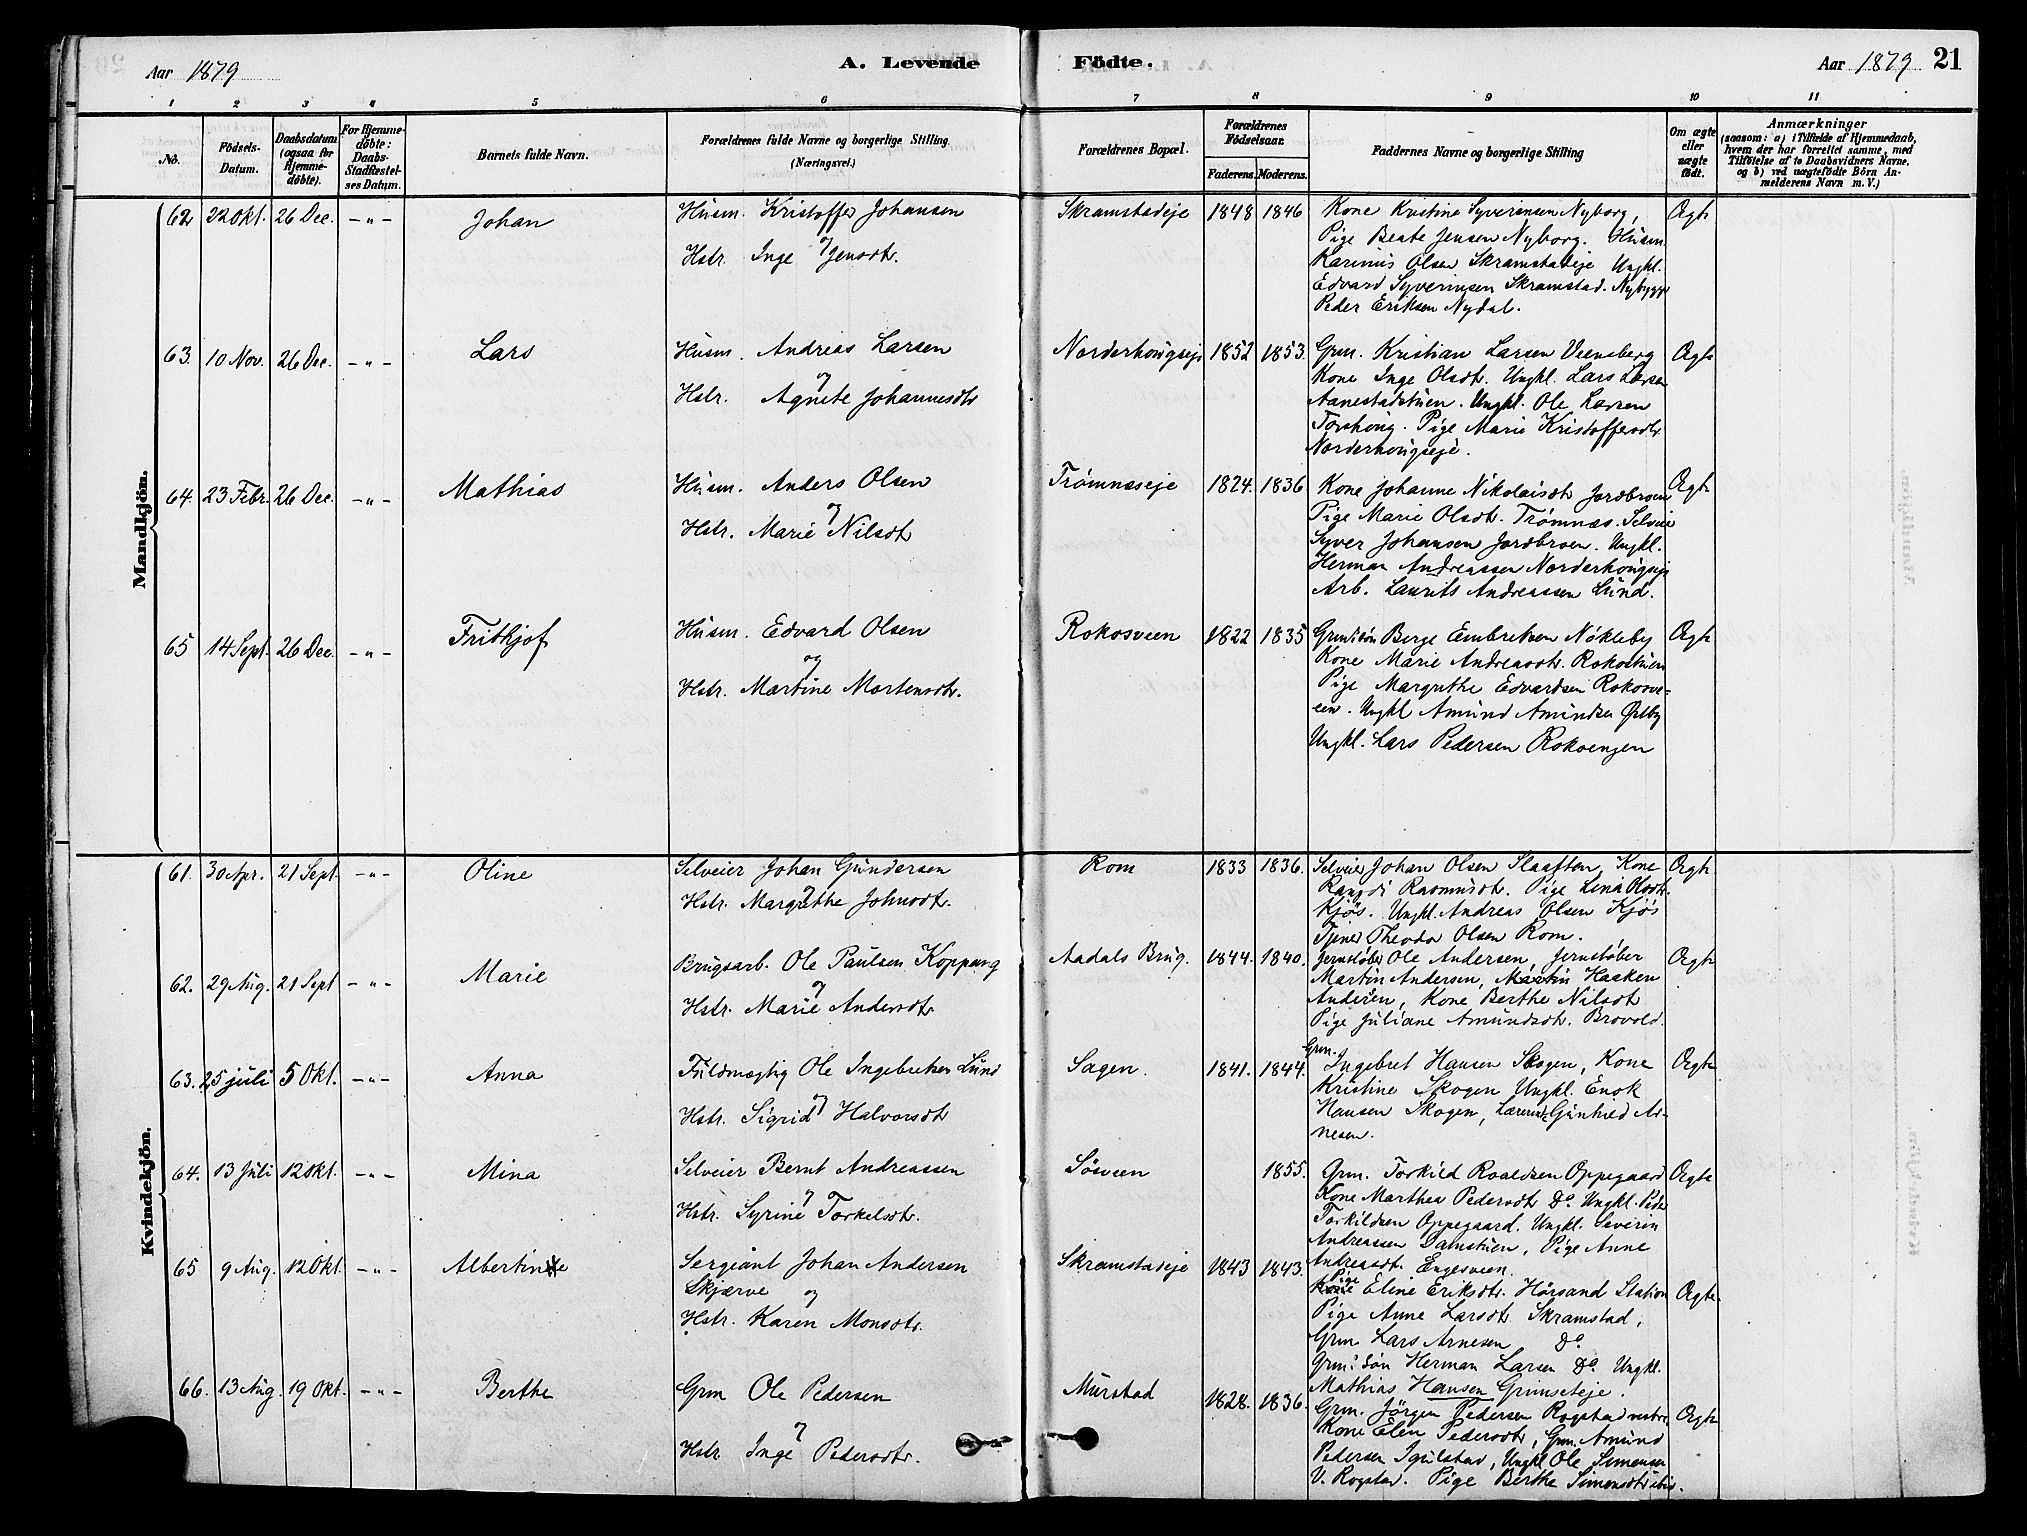 Aar 1879
A. Levende Födte.
Aar 1879 21
1 2 3 4 5 6 7 8 9 10 11
No.
Födsels-Datum.
Daabsdatum (ogsaa for Hjemme-döbte).
For Hjemme-döbte: Daabs-Stadfæstel-ses Datum.
Barnets fulde Navn.
Forældrenes fulde Navne og borgerlige Stilling (Næringsvei.)
Forældrenes Bopæl.
Forældrenes Födselsaar.
Faderens. Moderens.
Faddernes Navne og borgerlige Stilling
Om ægte eller uægte födt.
Anmærkninger
(saasom: a) i Tilfælde af Hjemmedaab, hvem der har forrettet samme, med Tilföielse af to Daabsvidners Navne, og b) ved uægtefödte Börn An-melderens Navn m. V.)
Mandkjön.
62 22 Okt. 26 Dec. -"- Johan
Husm. Kristoffer Johansen
og
Hstr. Inge Jensdtr.
Skramstadeje 1848 1846
Kone Kristine Syverinsen Nyborg,
Pige Beate Jensen Nyborg. Husm.
Karinus Olsen Skramstadeje Ungkl.
Edvard Syverinsen Skramstad. Nybygg.
Peder Eriksen Nydal.
Ægte
63. 10 Nov. 26 Dec. -"- Lars
Husm. Andreas Larsen
og
Hstr. Agnete Johannesdtr
Norderhougseje 1852 1853.
Grm. Kristian Larsen Veeneberg
Kone Inge Olsdtr. Ungkl. Lars Larsen
Aanestadstuen. Ungkl. Ole Larsen
Torshoug. Pige Marie Kristoffersdtr.
Norderhougseje.
Ægte
64. 23 Febr. 26 Dec. -"- Mathias
Husm. Anders Olsen
og
Hstr. Marie Nilsdtr
Trømnæseje 1824. 1836
Kone Johanne Nikolaisdtr Jordbroen
Pige Marie Olsdtr. Trømnæs. Selveier
Syver Johansen Jordbroen. Ungkl.
Herman Andreassen Norderhougseje
Arb. Laurits Andreassen Lund.
Ægte
65 14 Sept. 26 Dec. -"- Frithjof
Husm. Edvard Olsen
og
Hstr. Martine Mortensdtr.
Rokosveen 1822 1835
Grm.søn Berge Embretsen Nøkleby
Kone Marie Andreasdtr. Rokostuen
Pige Margrethe Edvardsen Rokosve-
een. Ungkl Amund Amundsen Østby
Ungkl. Lars Pedersen Rokoengen
Ægte
Kvindekjön.
61. 30 Apr. 21 Sept. -"- Oline
Selveier Johan Gundersen
og
Hstr. Margrethe Johnsdtr.
Rom 1833 1836.
Selveier Johan Olsen Slaatten, Kone
Rangdi Rasmusdtr. Pige Lina Olsdtr.
Kjøs. Ungkl. Andreas Olsen Kjøs
Tjener Theodor Olsen Rom.
Ægte
62. 29 Aug. 21 Sept -"- Marie
Brugsarb. Ole Paulsen Koppang
og
Hstr. Marie Andersdtr.
Aadals Brug. 1844. 1840.
Jernstøber Ole Andersen, Jernstøber
Martin Andersen, Haaken
Andersen, Kone Berthe Nilsdtr
Pige Juliane Amundsdtr. Brovold.
Ægte
63. 25 juli 5 Okt. -"- Anna
Fuldmægtig Ole Ingebretsen Lund
og
Hstr. Sigrid Halvorsdtr
Sagen. 1841. 1844.
Grm.
Ingebret Hansen Skogen, Kone
Kristine Skogen Ungkl. Enok
Hansen Skogen, Lærerinde Gunhild Ar-
nesen.
Ægte
64. 13 Juli 12 Okt. -"- Mina
Selveier Bernt Andreassen
og
Hstr. Syrine Torkelsdtr.
Søsveen 1855.
Grm. Torkild Roaldsen Oppegaard
Kone Marthea Pedersdtr Do. Ungkl. Peder
Torkildsen Oppegaard. Ungkl. Severin
Andreassen Damstuen, Pige Anne
Andreasdtr. Engesveen.
Ægte
65 9 Aug. 12 Okt. -"- Albertine
Sergiant Johan Andersen
Skjærve og
Hstr. Karen Monsdtr.
Skramstadeje 1843 1843.
Pige
Eline Eriksdtr. Hørsand Station
Pige Anne Larsdtr Skramstad,
Grm Lars Arnesen Do
Grm.søn Herman Larsen Do. Ungkl.
Mathias Hansen Grimseteje.
Ægte.
66. 13 Aug. 19 Okt. -"- Berthe
Grm Ole Pedersen
og
Hstr. Inge Pedersdtr.
Murstad 1828. 1836.
Grm. Jörgen Pedersen Rogstad vestre,
Kone Elen Pedersdtr, Grm. Amund
Pedersen Igulstad, Ungkl Ole Simensen
V. Rogstad. Pige Berthe Simensdtr ibid.
Ægte